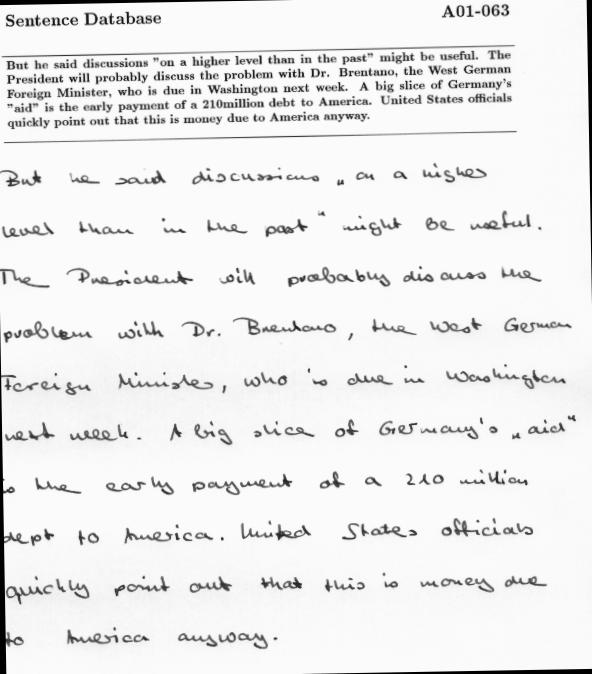 Sentence Database A01-063
But he said discussions "on a higher level than in the past" might be useful. The
President will probably discuss the problem with Dr. Brentano, the West German
Foreign Minister, who is due in Washington next week. A big slice of Germany's
"aid" is the early payment of a 210million debt to America. United States officials
quickly point out that this is money due to America anyway.
But he said discussions „on a higher
level than in the past“ might be useful.
The President will probably discuss the
problem with Dr. Brentano, the West German
Foreign Minister, who is due in Washington
next week. A big slice of Germany's „aid“
is the early payment of a 210 million
dept to America. United States officials
quickly point out that this is money due
to America anyway.